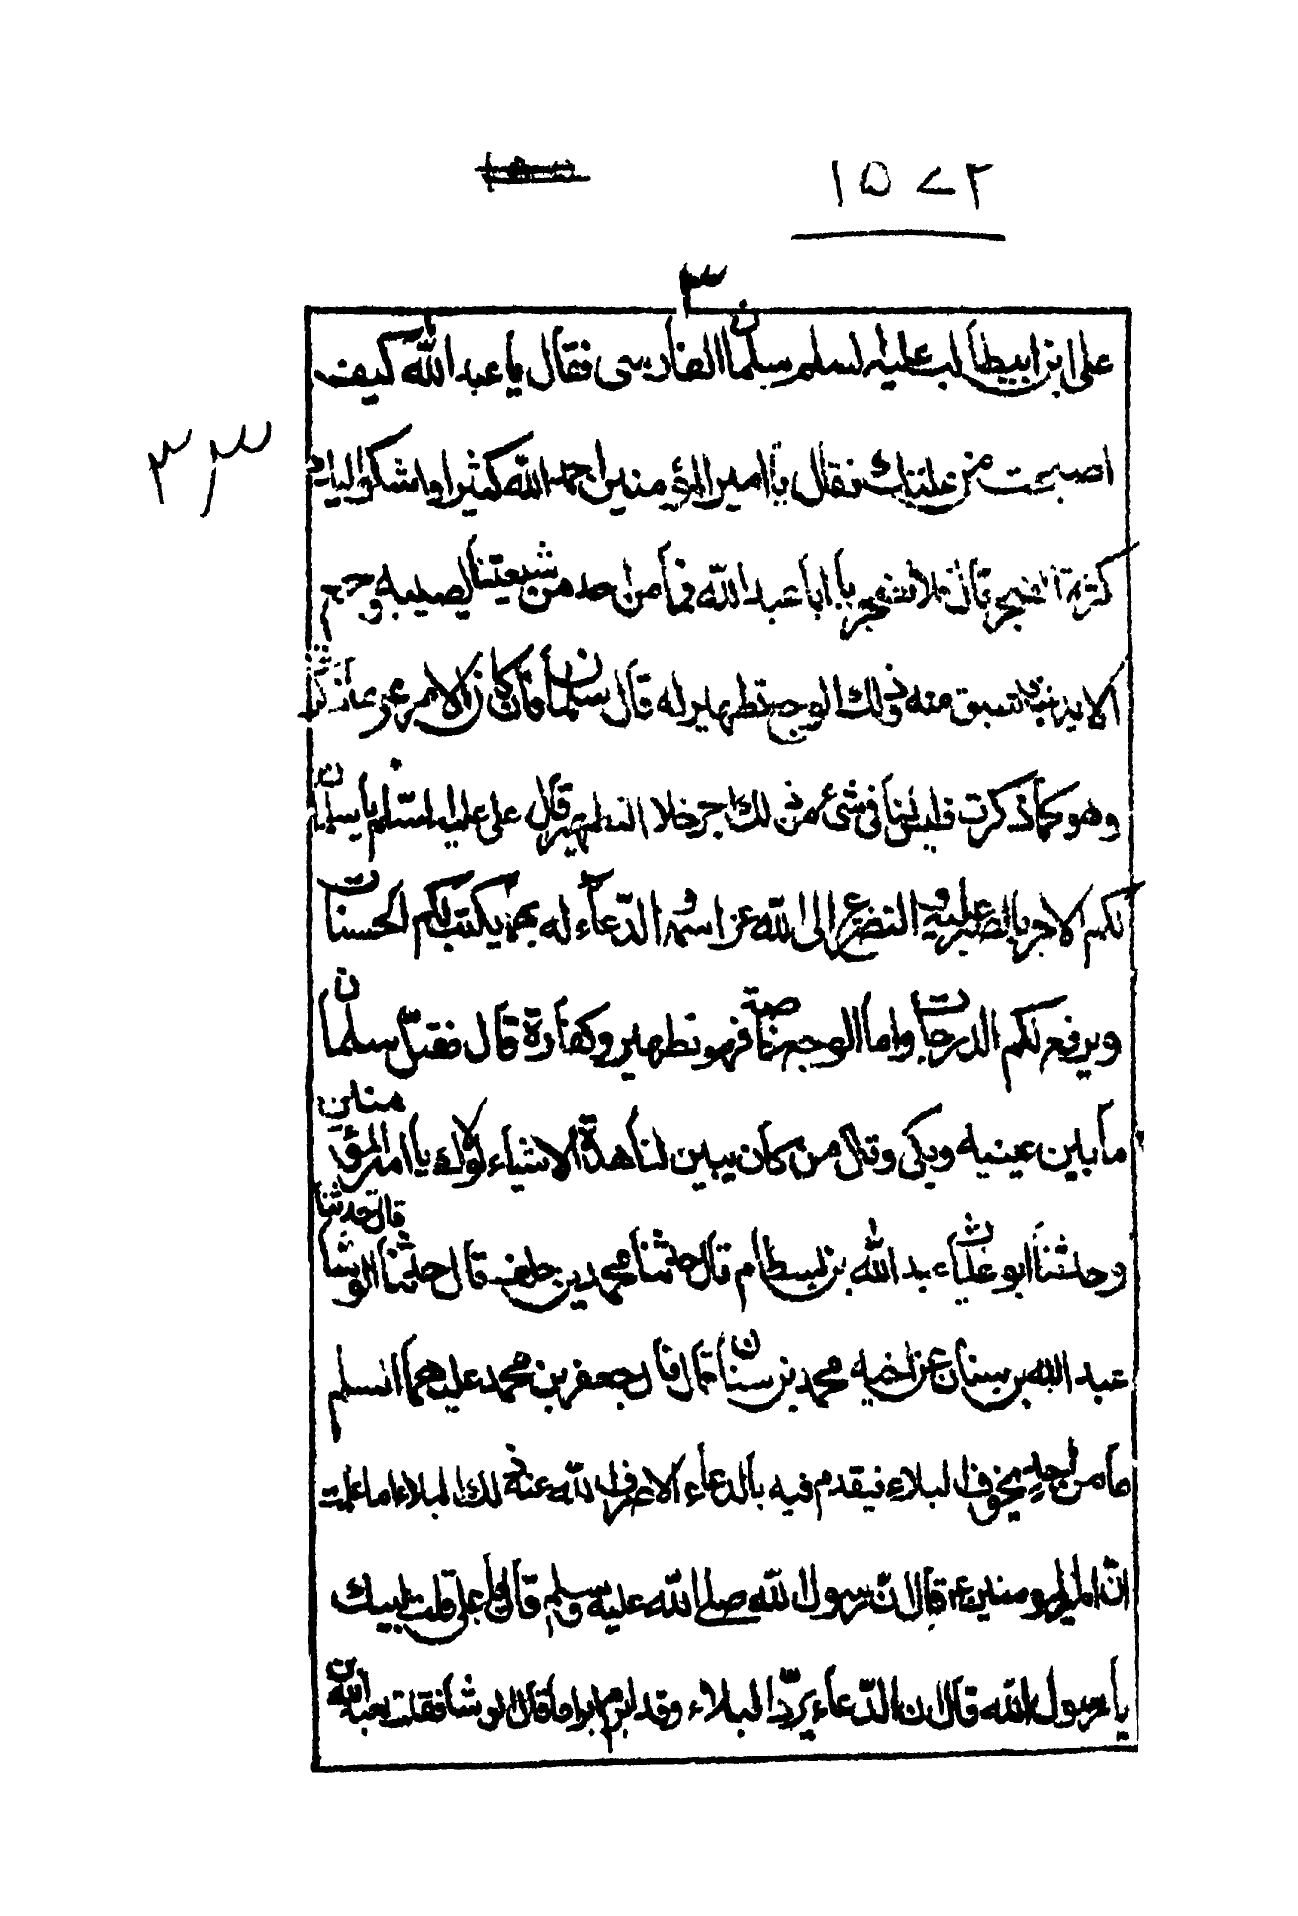 ١٥٧٢
٣
٣٣
على ابن ابيطالب عليه السلم سلمان الفارسى فقال يا عبد الله كيف
اصبحت من علتك فقال يا امير المؤمنين احمد الله كثيرا واشكو اليك
كثرة الضجر قال فلا تضجر يا ابا عبد الله فما من احد من شيعتنا يصيبه وجع
الا بذنب سبق منه وذلك الوجع تطهير له قال سلمان فان كان الامر على ما ذكرت
وهو كما ذكرت فليس لنا فى شئ من ذلك اجر خلا التطهير قال على عليه السلم يا سلمان
لكم الاجر بالصبر عليه والتضرع الى الله عز اسمه والدعاء له بهما يكتب لكم الحسنات
ويرفع لكم الدرجات واما الوجع خاصة فهو تطهير وكفارة قال فقبل سلمان
ما بين عينيه وبكى وقال من كان يميز لنا هذه الاشياء لولاك يا امير المؤمنين
وحدثنا ابو عتاب عبد الله بن بسطام قال حدثنا محمد بن خلف قال حدثنا الوشا قال حدثنا
عبد الله بن سنان عن اخيه محمد بن سنان قال قال جعفر بن محمد عليهما السلم
ما من احد يخوف البلاء فيقدم فيه بالدعاء الا صرف الله عنه ذلك البلاء اما علمت
ان امير المومنين ع قال ان رسول الله صلى الله عليه وسلم قال يا على قلت لبيك
يا رسول الله قال ان الدعاء يرد البلاء وقد ابرم ابراما قال الوشا فقلت لعبد الله بن